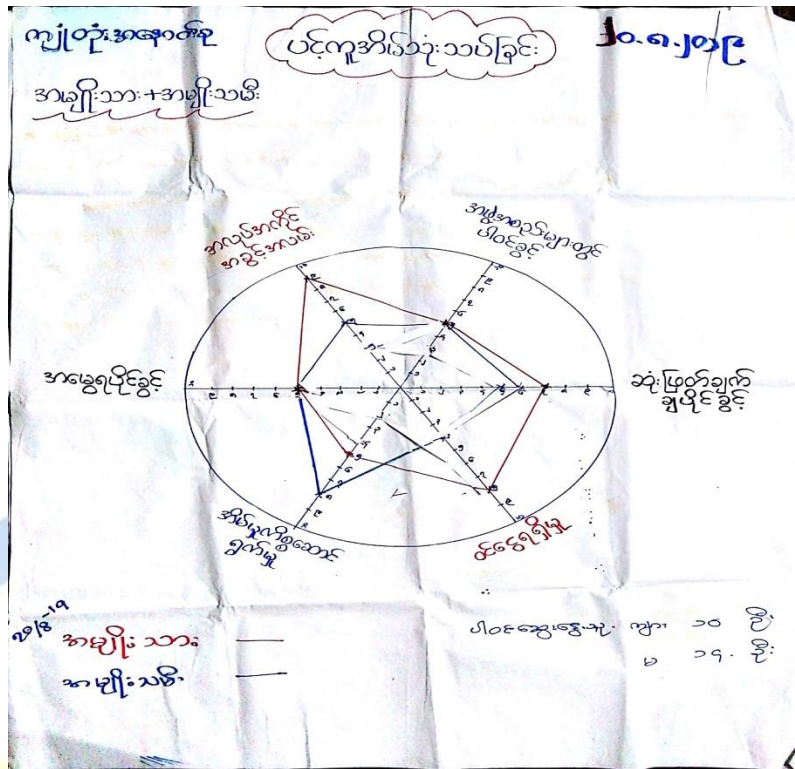 ကျုံတုံးအနောက်စု
ပင့်ကူအိမ်သုံးသပ်ခြင်း
၂၀.၈.၂၀၁၉
အမျိုးသား+အမျိုးသမီး
အလုပ်အကိုင်
အခွင့်အလမ်း
အဖွဲ့အစည်းများတွင်
ပါဝင်ခွင့်
အမွေရပိုင်ခွင့်
ဆုံးဖြတ်ချက်
ချပိုင်ခွင့်
အိမ်မှုကိစ္စဆောင်
ရွက်မှု
ဝင်ငွေရရှိမှု
20/8-19
အမျိုးသား
အမျိုးသမီး
ပါဝင်ဆွေးနွေးသူ ကျား ၁၀ ဦး
မ ၁၇. ဦး